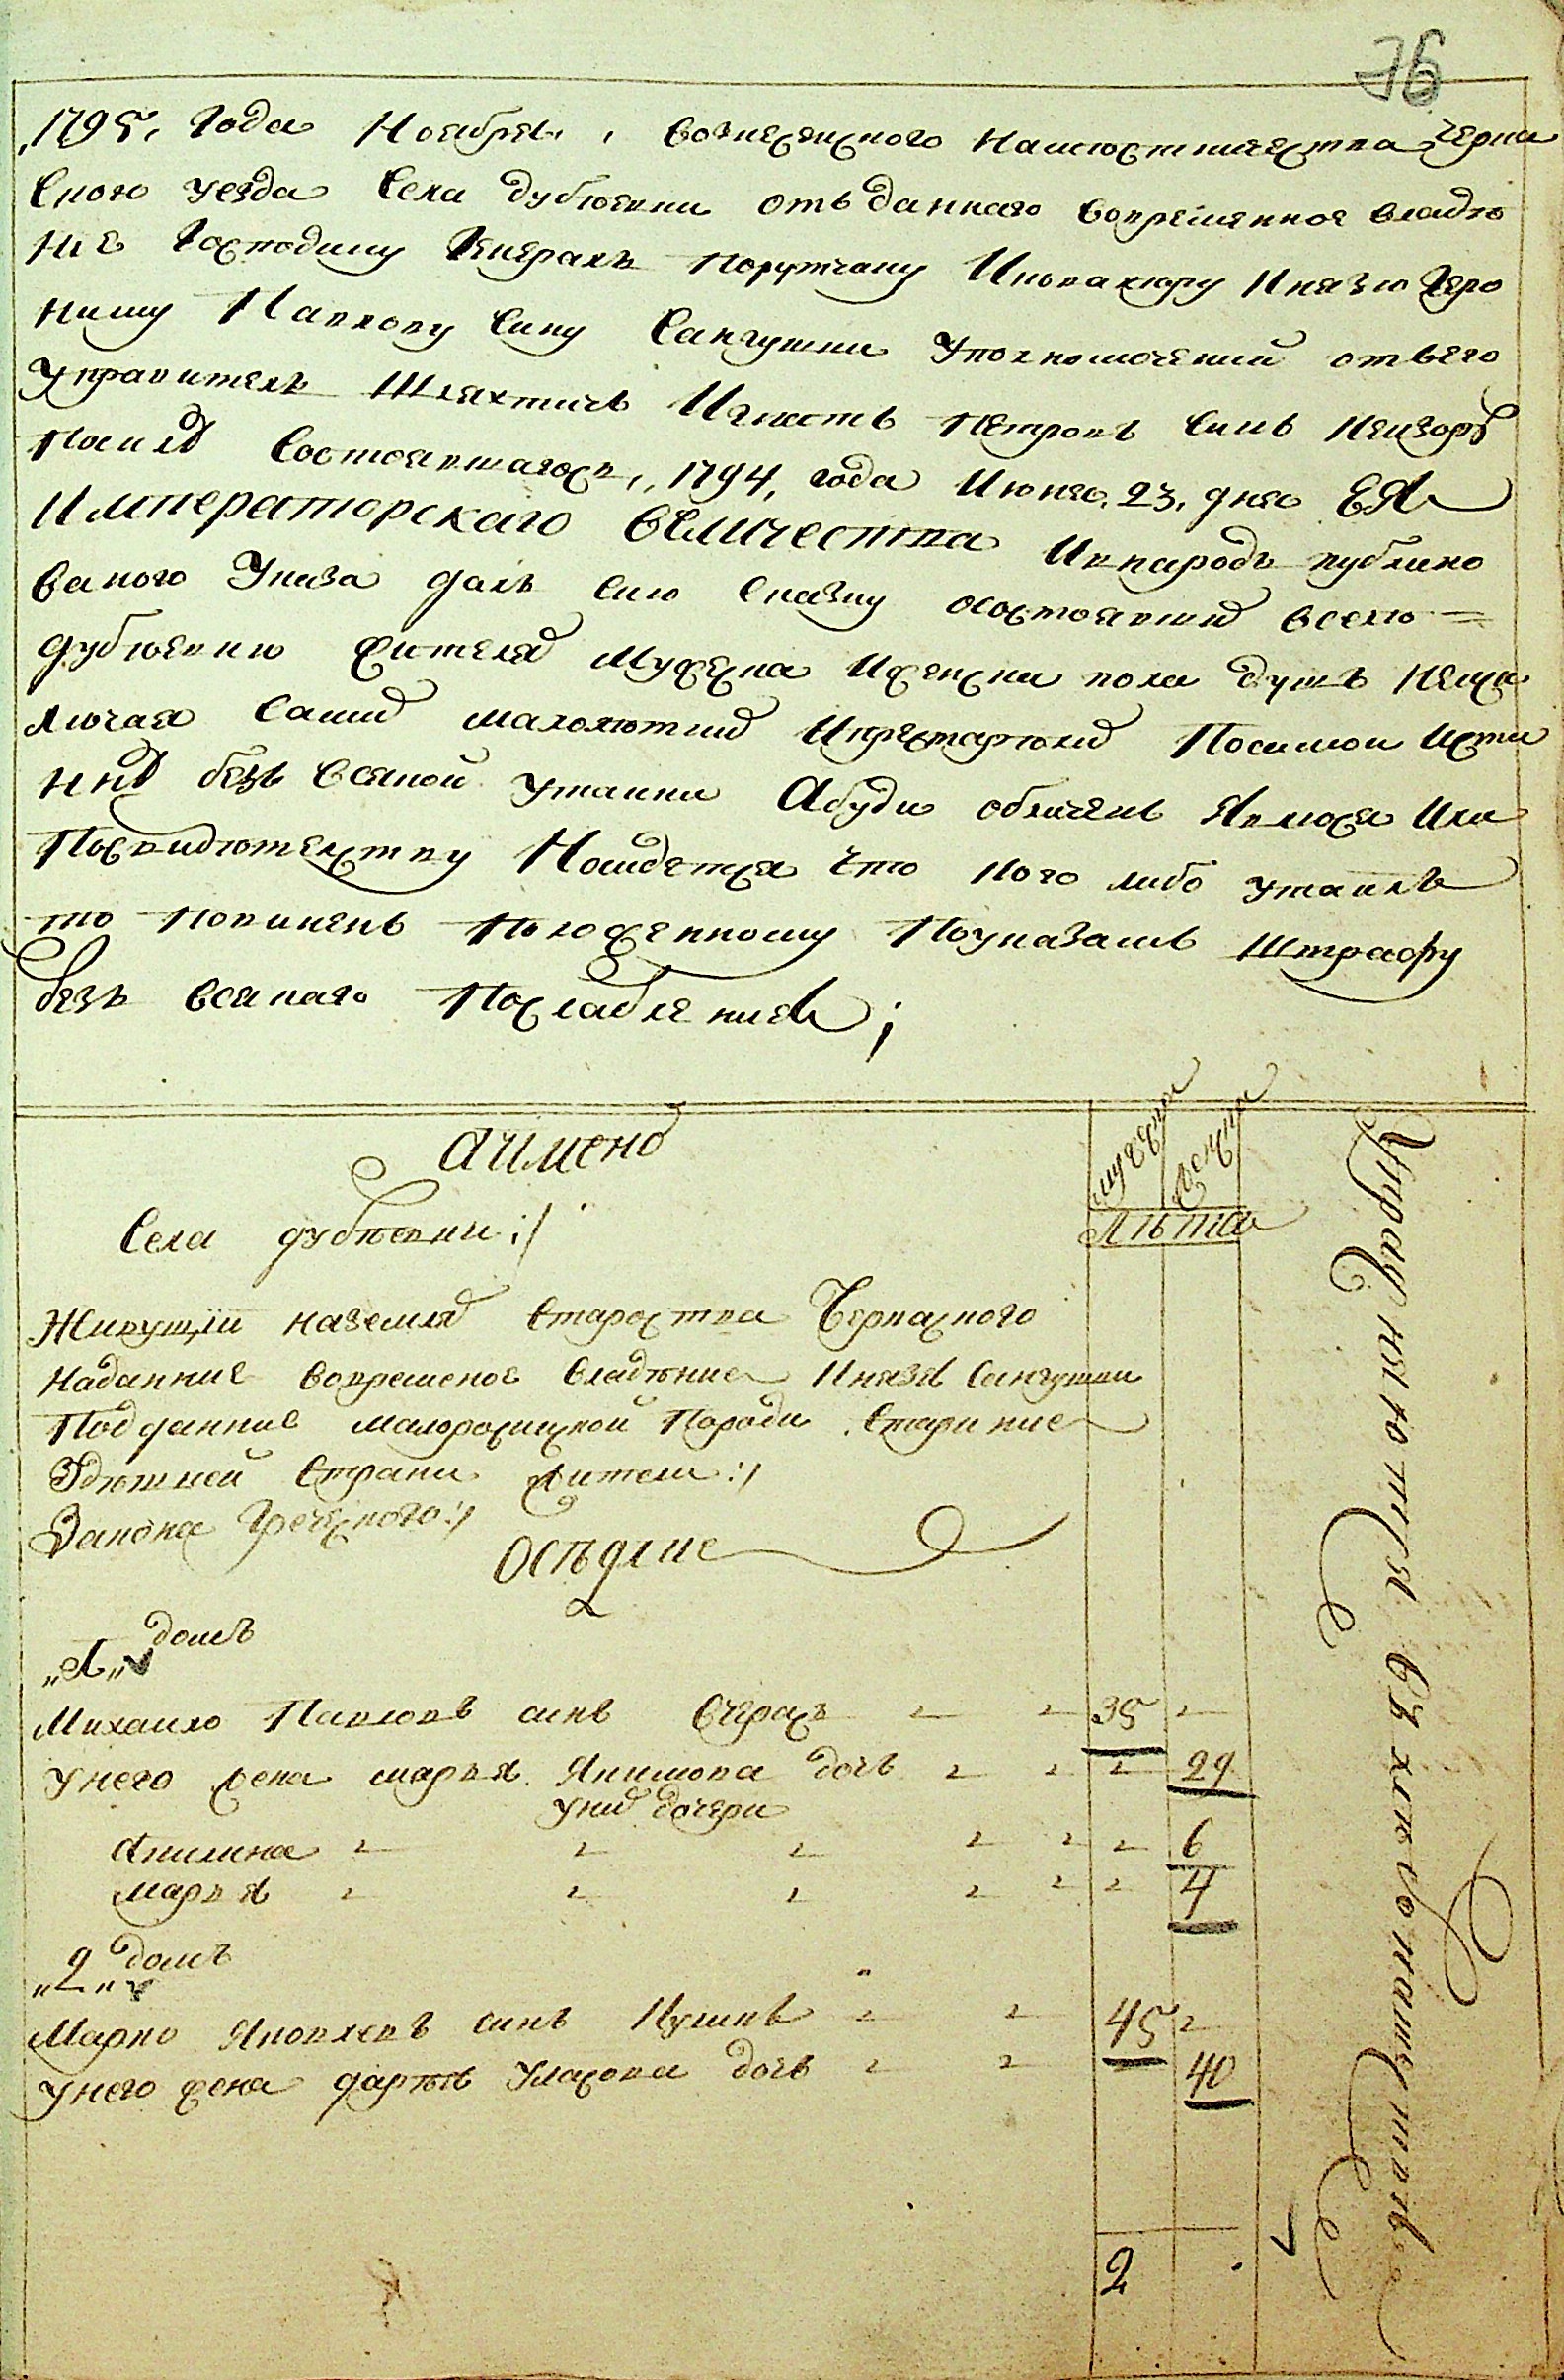 76
,1795, Года Ноября, , вознесенского Намюстничества Черка
ского уезда Села дубюевки отъ данного вовременное владю
ние Господину Генералъ порутчику Иковалюру Князю Геро
ниму Павлову сину Сангушки уполномочений отъего
управитель Шляхтичъ Игнать Петровъ синъ
Посилѣ состоявшагось,, 1794, года Июня, 23, дня ЕЯ
Императорскаго величества Ивнародъ публико
ваного Указа далъ сию сказку осостоящих вселю =
дубюевки жителях мужеска иженски пола душъ неиск
лючая самих малолютних Ипрестарюлих Посамой исти
ннѣ безъ всякой утаики Абуди обличенъ Явлюся Или
Посвидютельству Найдется что кого либо утаилъ
то повиненъ Положенному Поуказамъ штрафу
безъ всякаго Послабления;
Аимено
Села дубѣевки :/
мужска
женска
Лѣта
Живущий наземлѣ Староства Черкаского
наданние вовременое владюние Князя Сангушки
Подданние малоросийской Породи Старинние
Здюшней Страни жители :/
Закона Греческого :/
Осѣдлие
„1„ домъ
Михаило Павловъ синъ Очерахъ 35
унего жена марья Якимова дочь 29
уних дочери
Акилина 6
марья 4
„2„ домъ
Марко Яковлевъ синъ Куликъ 45
унего жена дарья Уласова дочь 40
2